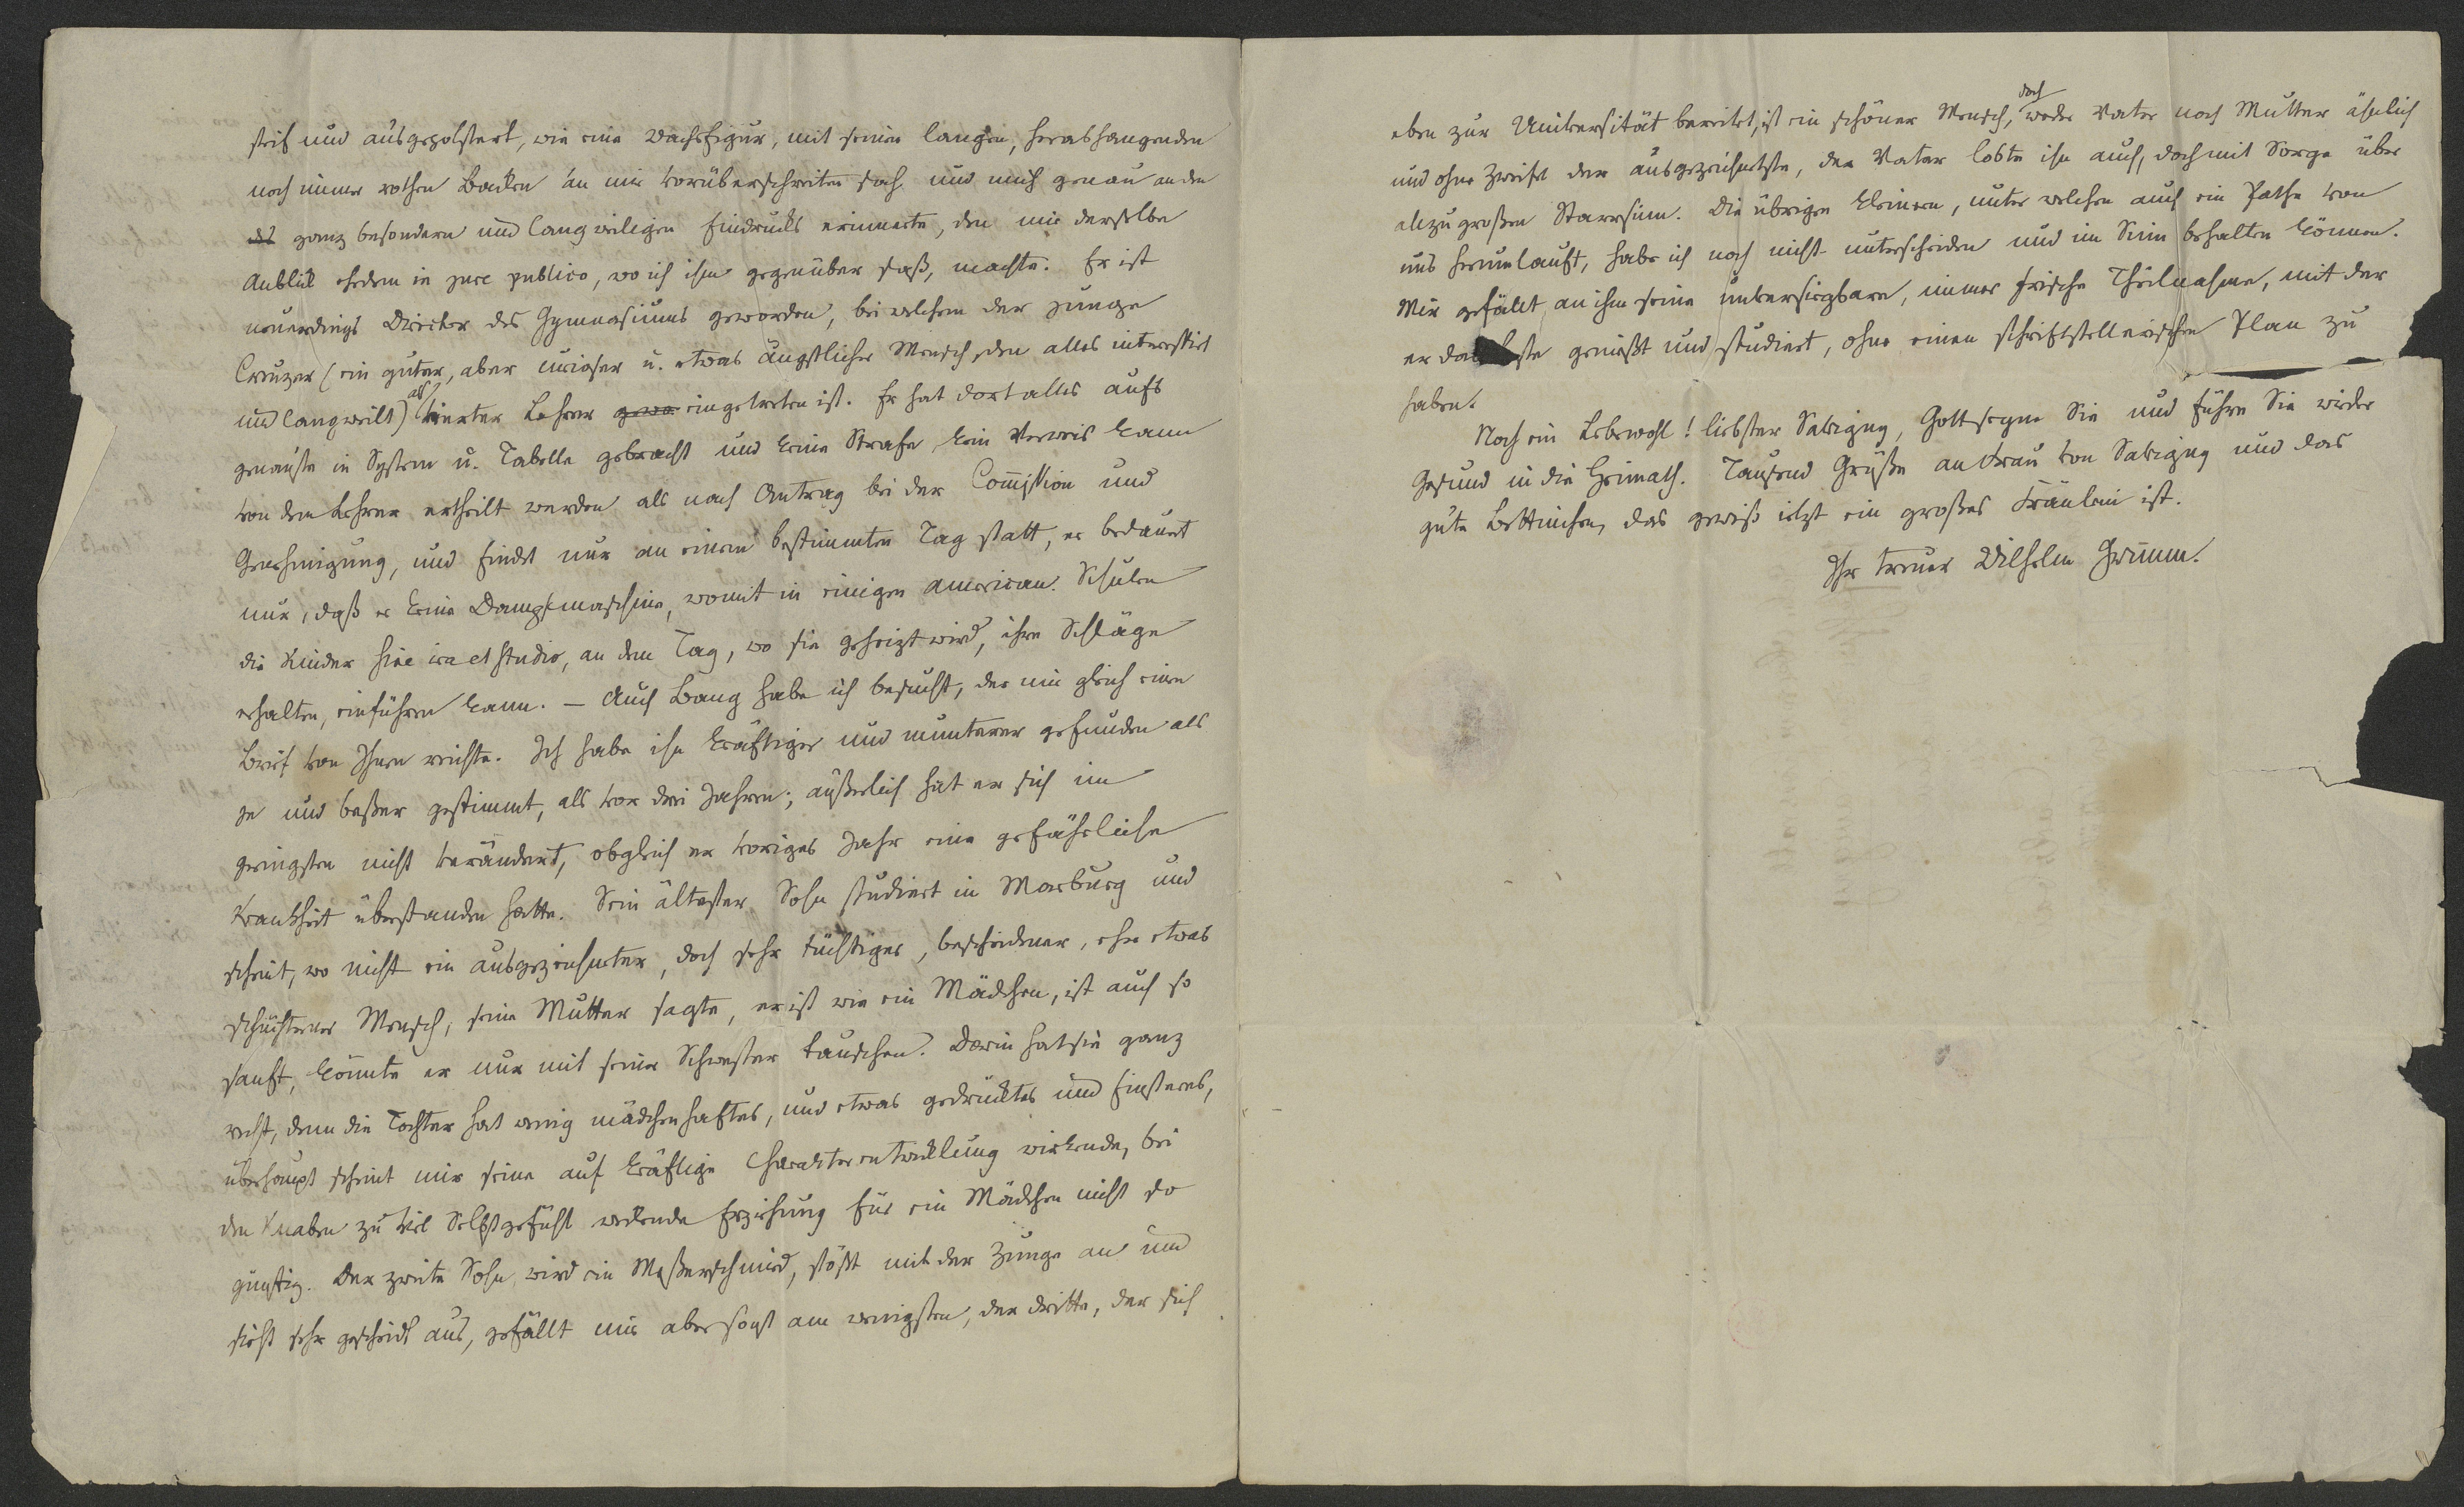 steif und ausgepolstert, wie eine Wachsfigur, mit seinen langen, herabhangenden
noch immer rothen Backen an mir vorüberschreiten sah und mich genau an den
ganz besondern und langweiligen Eindrucks erinnerte, den mir derselbe
Anblick ehedem in jure publico, wo ich ihm gegenüber saß, machte. Er ist
neuerdings Director des Gymnasiums geworden, bei welchem der junge
Creuzer (ein guter, aber curioser u. etwas ängstlicher Mensch, den alles interessirt
und langweilt) als vierter Lehrer eingetreten ist. Er hat dort alles aufs
genauste in System u. Tabelle gebracht und keine Strafe, kein Verweis kann
von dem Lehrer ertheilt werden als nach Antrag bei der Comission und
Genehmigung, und findet nur an einem bestimmten Tag statt, er bedauert
nur, daß er keine Dampfmaschine, womit in einigen american. Schulen
die Kinder sine ira et studio, an dem Tag, wo sie geheizt wird, ihre Schläge
erhalten, einführen kann. — Auch Bang habe ich besucht, der mir gleich einen
Brief von Ihnen reichte. Ich habe ihn kräftiger und munterer gefunden als
je und beßer gestimmt, als vor drei Jahren; äußerlich hat er sich im
geringsten nicht verändert, obgleich er voriges Jahr eine gefährliche
Krankheit überstanden hatte. Sein ältester Sohn studiert in Marburg und
scheint, wo nicht ein ausgezeichneter, doch sehr tüchtiger, bescheidener, eher etwas
schüchterner Mensch, seine Mutter sagte, er ist wie ein Mädchen, ist auch so
sanft, könnte er nur mit seiner Schwester tauschen. Darin hat sie ganz
recht, denn die Tochter hat wenig mädchenhaftes, und etwas gedrücktes und finsteres,
überhaupt scheint mir seine auf kräftige Charakterentwicklung wirkende, bei
den Knaben zu viel Selbstgefühl weckende Erziehung für ein Mädchen nicht so
günstig. Der zweite Sohn, wird ein Meßerschmied, stößt mit der Zunge an und
sieht sehr gescheidt aus, gefällt mir aber sonst am wenigsten, der dritte, der sich
eben zur Universität bereitet, ist ein schöner Mensch, doch weder Vater noch Mutter ähnlich
und ohne Zweifel der ausgezeichnetste, der Vater lobte ihn auch, doch mit Sorge über
allzugroßen Starrsinn. Die übrigen Kleinern, unter welchen auch ein Pathe von
uns herumlauft, habe ich noch nicht unterscheiden und im Sinn behalten können.
Mir gefällt an ihm seine unversiegbare, immer frische Theilnahme, mit der
er das beste genießt und studiert, ohne einen schriftstellerischen Plan zu
haben.
Noch ein Lebewohl! liebster Savigny, Gott segne Sie und führe Sie wieder
gesund in die Heimath. Tausend Grüße an Frau von Savigny und das
gute Bettinchen, das gewiß ietzt ein großes Fräulein ist.
Ihr treuer Wilhelm Grimm.